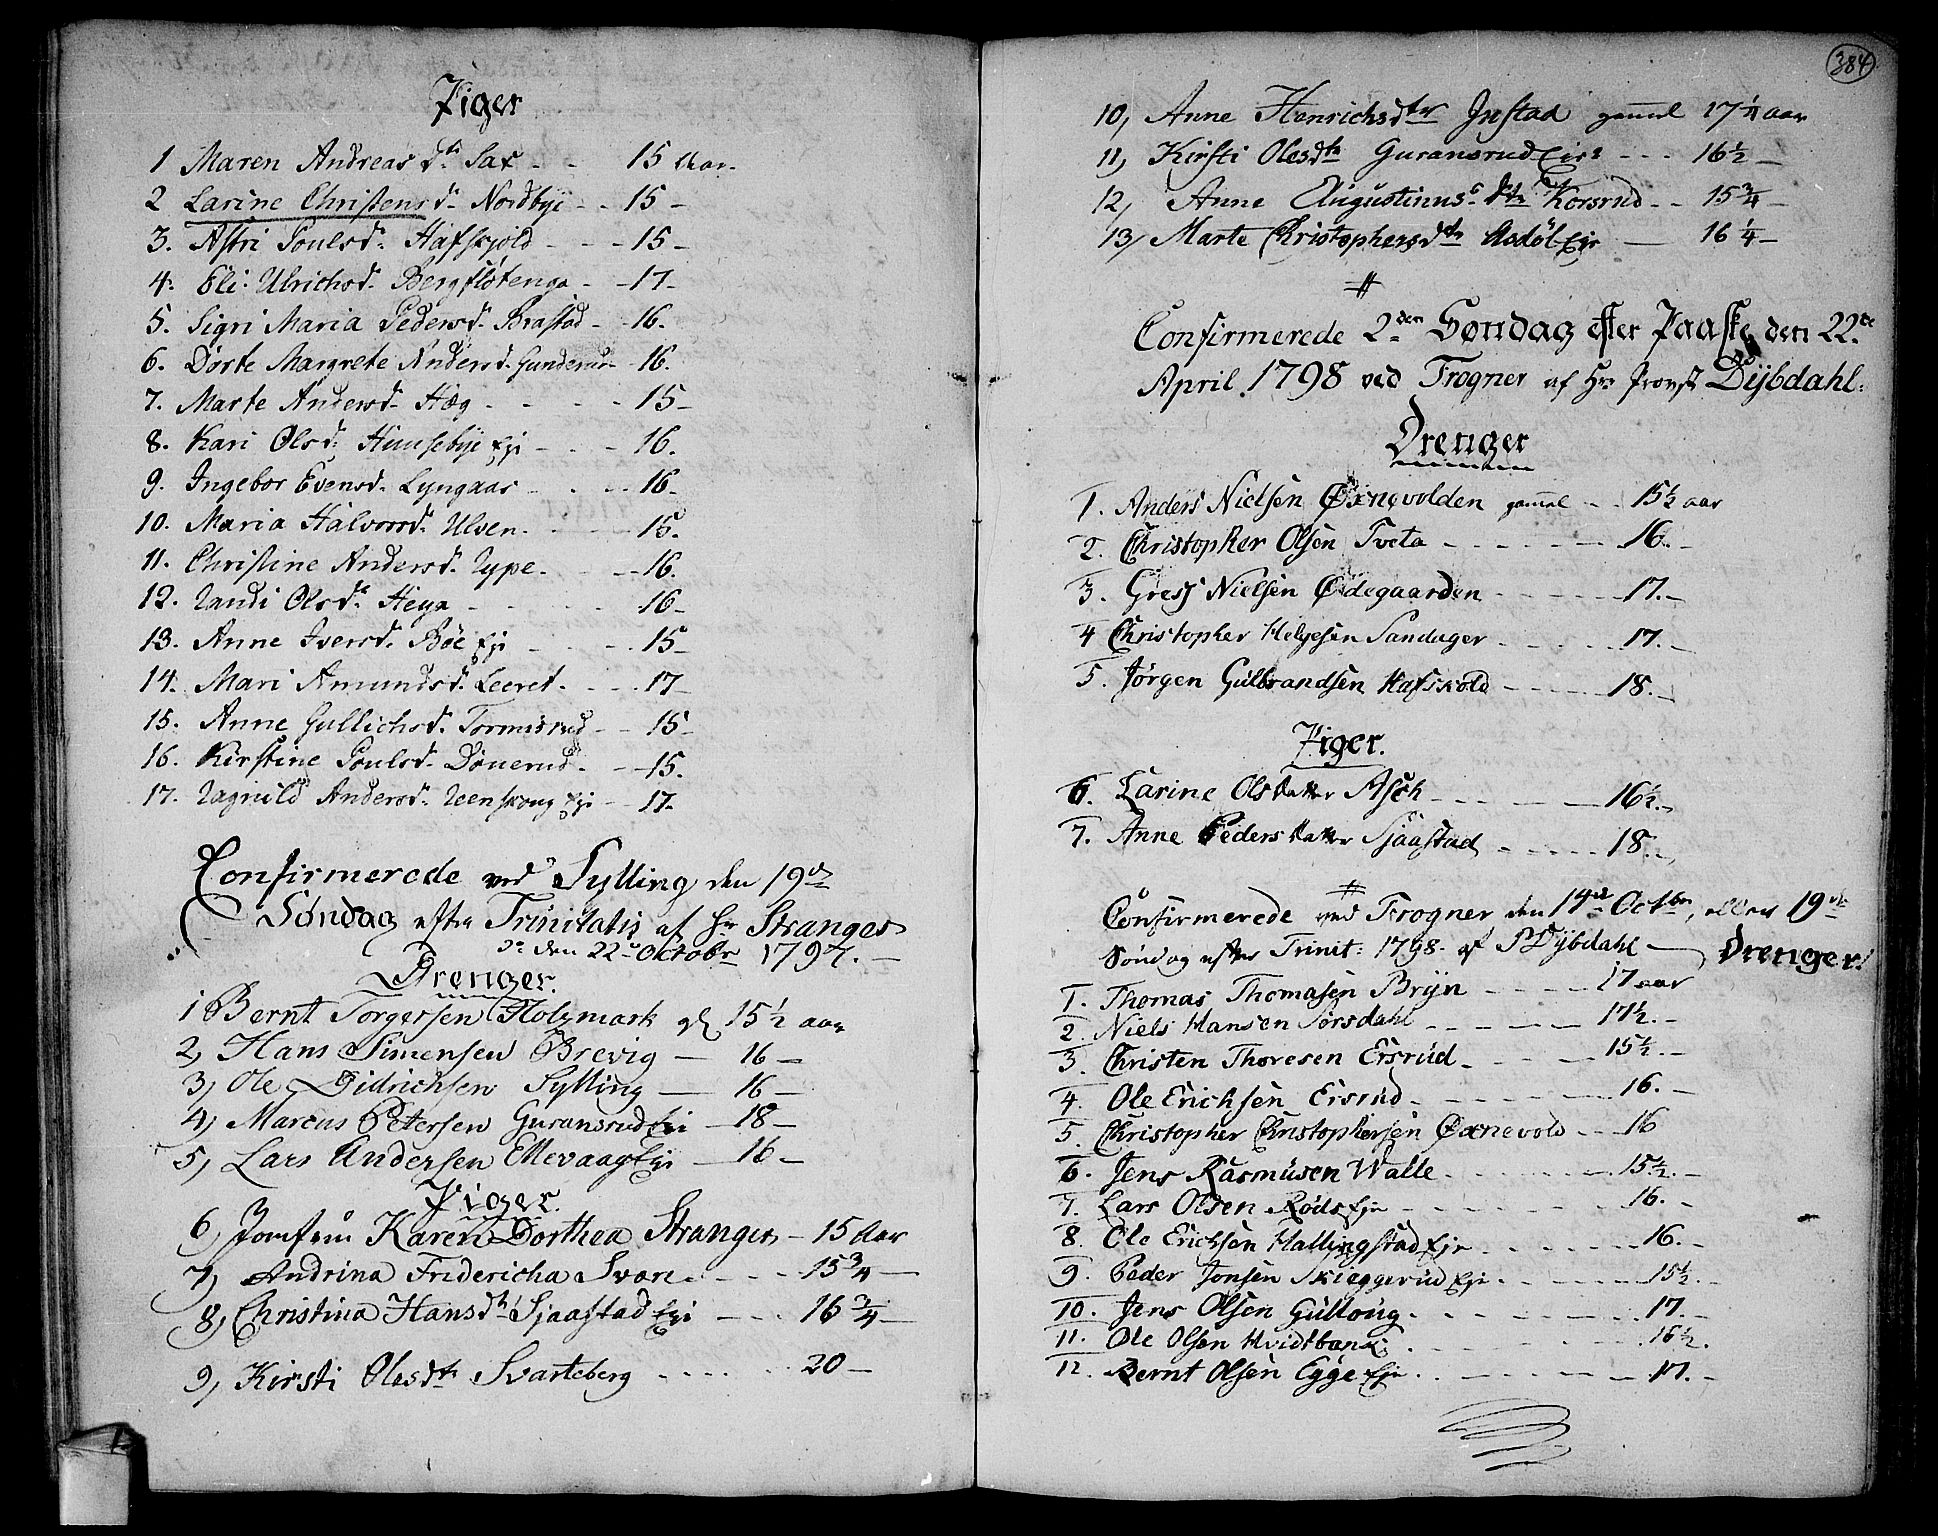 Piger
1 Maren Andreas dtr Sax - - 15 Aar
2 Larine Christensd. Nordbye - - 15 -
3. Astri Poulsd. Hafskjold - - - 15 -
4. Eli Ulrichsd. Bergfløtenga - - 17 -
5. Sigri Maria Pedersd. Brastad - - 16.
6. Dorte Margrete Andersd. Gunderud - 16.
7. Marte Andersd. Hæg - - - - 15 -
8. Kari Olsd. Huusebye Eje - - - 16.
9. Ingebor Evensd. Lyngaas - - - 16 -
10. Maria Halvorsd. Ulven - - - 15.
11. Christine Andersd. Rype - - - 16.
12. Randi Olsd. Heya - - - - 16 -
13. Anne Iversd. Böe Eje - - - 15 -
14. Mari Amundsd. Leeret - - - 17 -
15. Anne Gullichsd. Tormosrud - - 15 -
16. Kirstine Poulsd. Dönerud - - 15.
17. Ragnild Andersd. Reenskoug Eje - 17 -
Confirmerede ved Sylling den 19de
Søndag efter Trinitatis af Hr Stranger
den 22 October 1797.
Drenger.
1 Bernt Torgersen Holzmark gl 15½ aar
2, Hans Simensen Brevig — 16 —
3, Ole Didrichsen Sylling — 16 —
4, Marcus Petersen Guransrud Eje — 18 —
5, Lars Andersen Ellevaag Eje — 16 —
Piger.
6, Jomfru Karen Dorthea Stranger - 15 Aar
7, Andrina Fridericha Svare - - - 15¾ —
8, Christina Hansdtr Sjaastad Eje - - - 16¾ —
9, Kirsti Olesdtr Svarteberg - - - - 20 —
384
10, Anne Henrichsdtr Instad gammel 17¼ aar
11, Kirsti Olesdtr Guransrud Eje - - - 16½ —
12, Anne Augustinus dtr Korsrud - - 15¾ —
13, Marte Christophersdtr Asdøl Eje — 16¼ —
Confirmerede 2den Søndag efter Paaske den 22de
April 1798 ved Frogner af Hr Provst Dÿbdahl.
Drenger
1. Anders Nielsen Øxnevolden gammel - - 15½ aar
2. Christopher Olsen Tveta - - - - - 16. -
3. Nielsen Ødegaarden - - - - 17. -
4 Christopher Helgesen Sandager - - - - 17. -
5. Jörgen Gulbrandsen Hafskold - - - - 18. -
Piger.
6. Larine Olsdatter Asch - - - - - 16½. -
7. Anne Pedersdatter Sjaastad - - - - 18. -
Confirmerede ved Frogner den 14de Octbr, eller 19de
Søndag efter Trinit: 1798. af P Dÿbdahl — Drenger.
1. Thomas Thomasen Brÿn - - - - 17 aar
2. Niels Hansen Sørsdahl - - - - 17½. -
3. Christen Thoresen Ersrud - - - - 15½. -
4. Ole Erichsen Ersrud - - - - 16. -
5. Christopher Christophersen Øxnevold - - 16
6. Jens Rasmusen Walle - - - - 15½. -
7. Lars Olsen Röds Eje - - - - 16. -
8. Ole Erichsen Hallingstad Eje - - - - 16. -
9. Peder Jonsen Skieggerud Eje - - - - 15½. -
10. Jens Olsen Gulloug - - - - 17. -
11. Ole Olsen Hvidtbank - - - - 16½.
12. Bernt Olsen Egge Eje - - - - 17. -